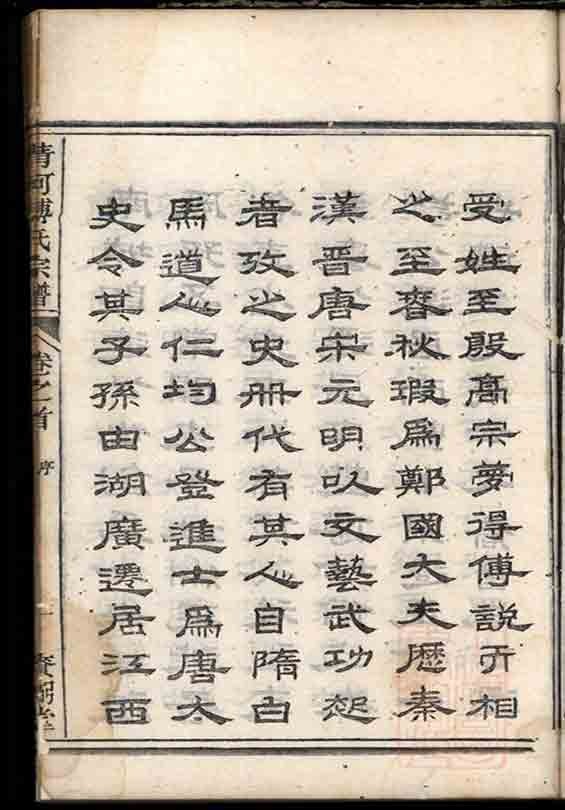 受姓至殷高宗夢得傅說亓相
之至春秋瑕爲鄭國大夫歷秦
漢晋唐宋元明以文藝武功起
者攷之史册代有其人自隋古
馬道人仁均公登進士爲唐太
史令其子孫由湖廣遷居江西
清河傅氏宗譜
卷之首
序
一